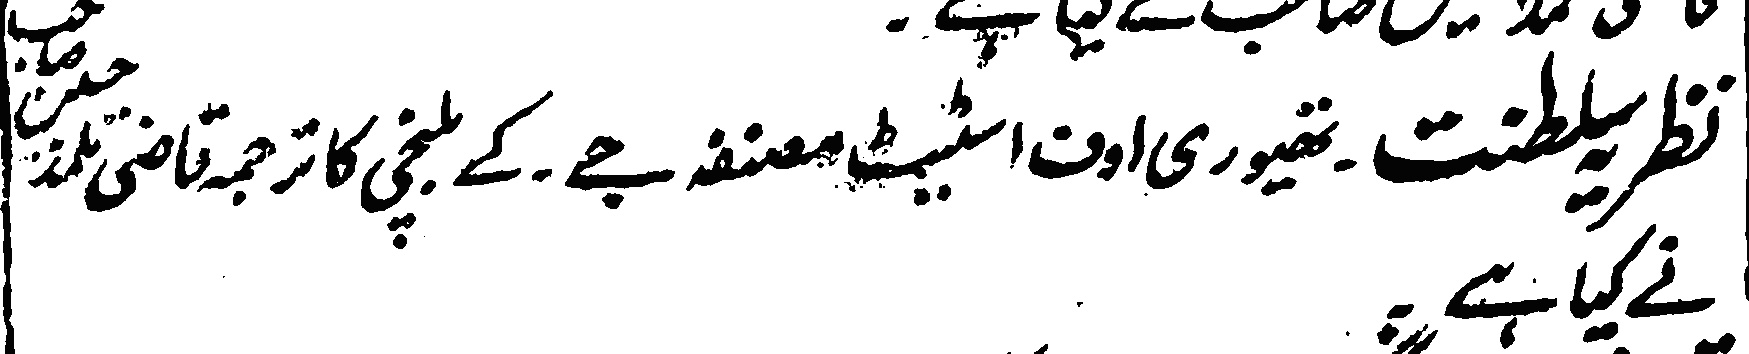 قاضی تلمذ حسین صاحب نے کیا ہے ۔
نظریہ سلطنت ۔ تھیوری اوف اسٹیٹ مصنفہ جے ۔ کے بلنچی کا ترجمہ قاضی تلمذ حسین صاحب
نے کیا ہے ۔